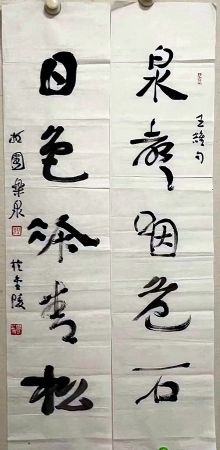 泉声咽危石
王维句
日色冷青松
乐泉
于金陵